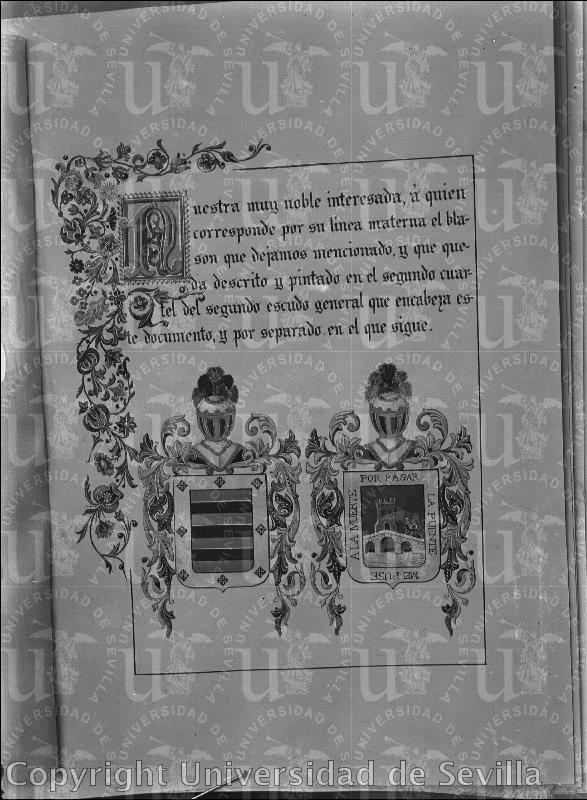 Nuestra muy noble interesada, á quien
corresponde por su línea materna el bla-
son que dejamos mencionado, y que que-
da descrito y pintado en el segundo cuar-
tel del segundo escudo general que encabeza es-
te documento, y por separado en el que sigue.
POR PASAR
LA PUENTE
ME PUSE
A LA MUERTE
Copyright Universidad de Sevilla
UNIVERSIDAD DE SEVILLA